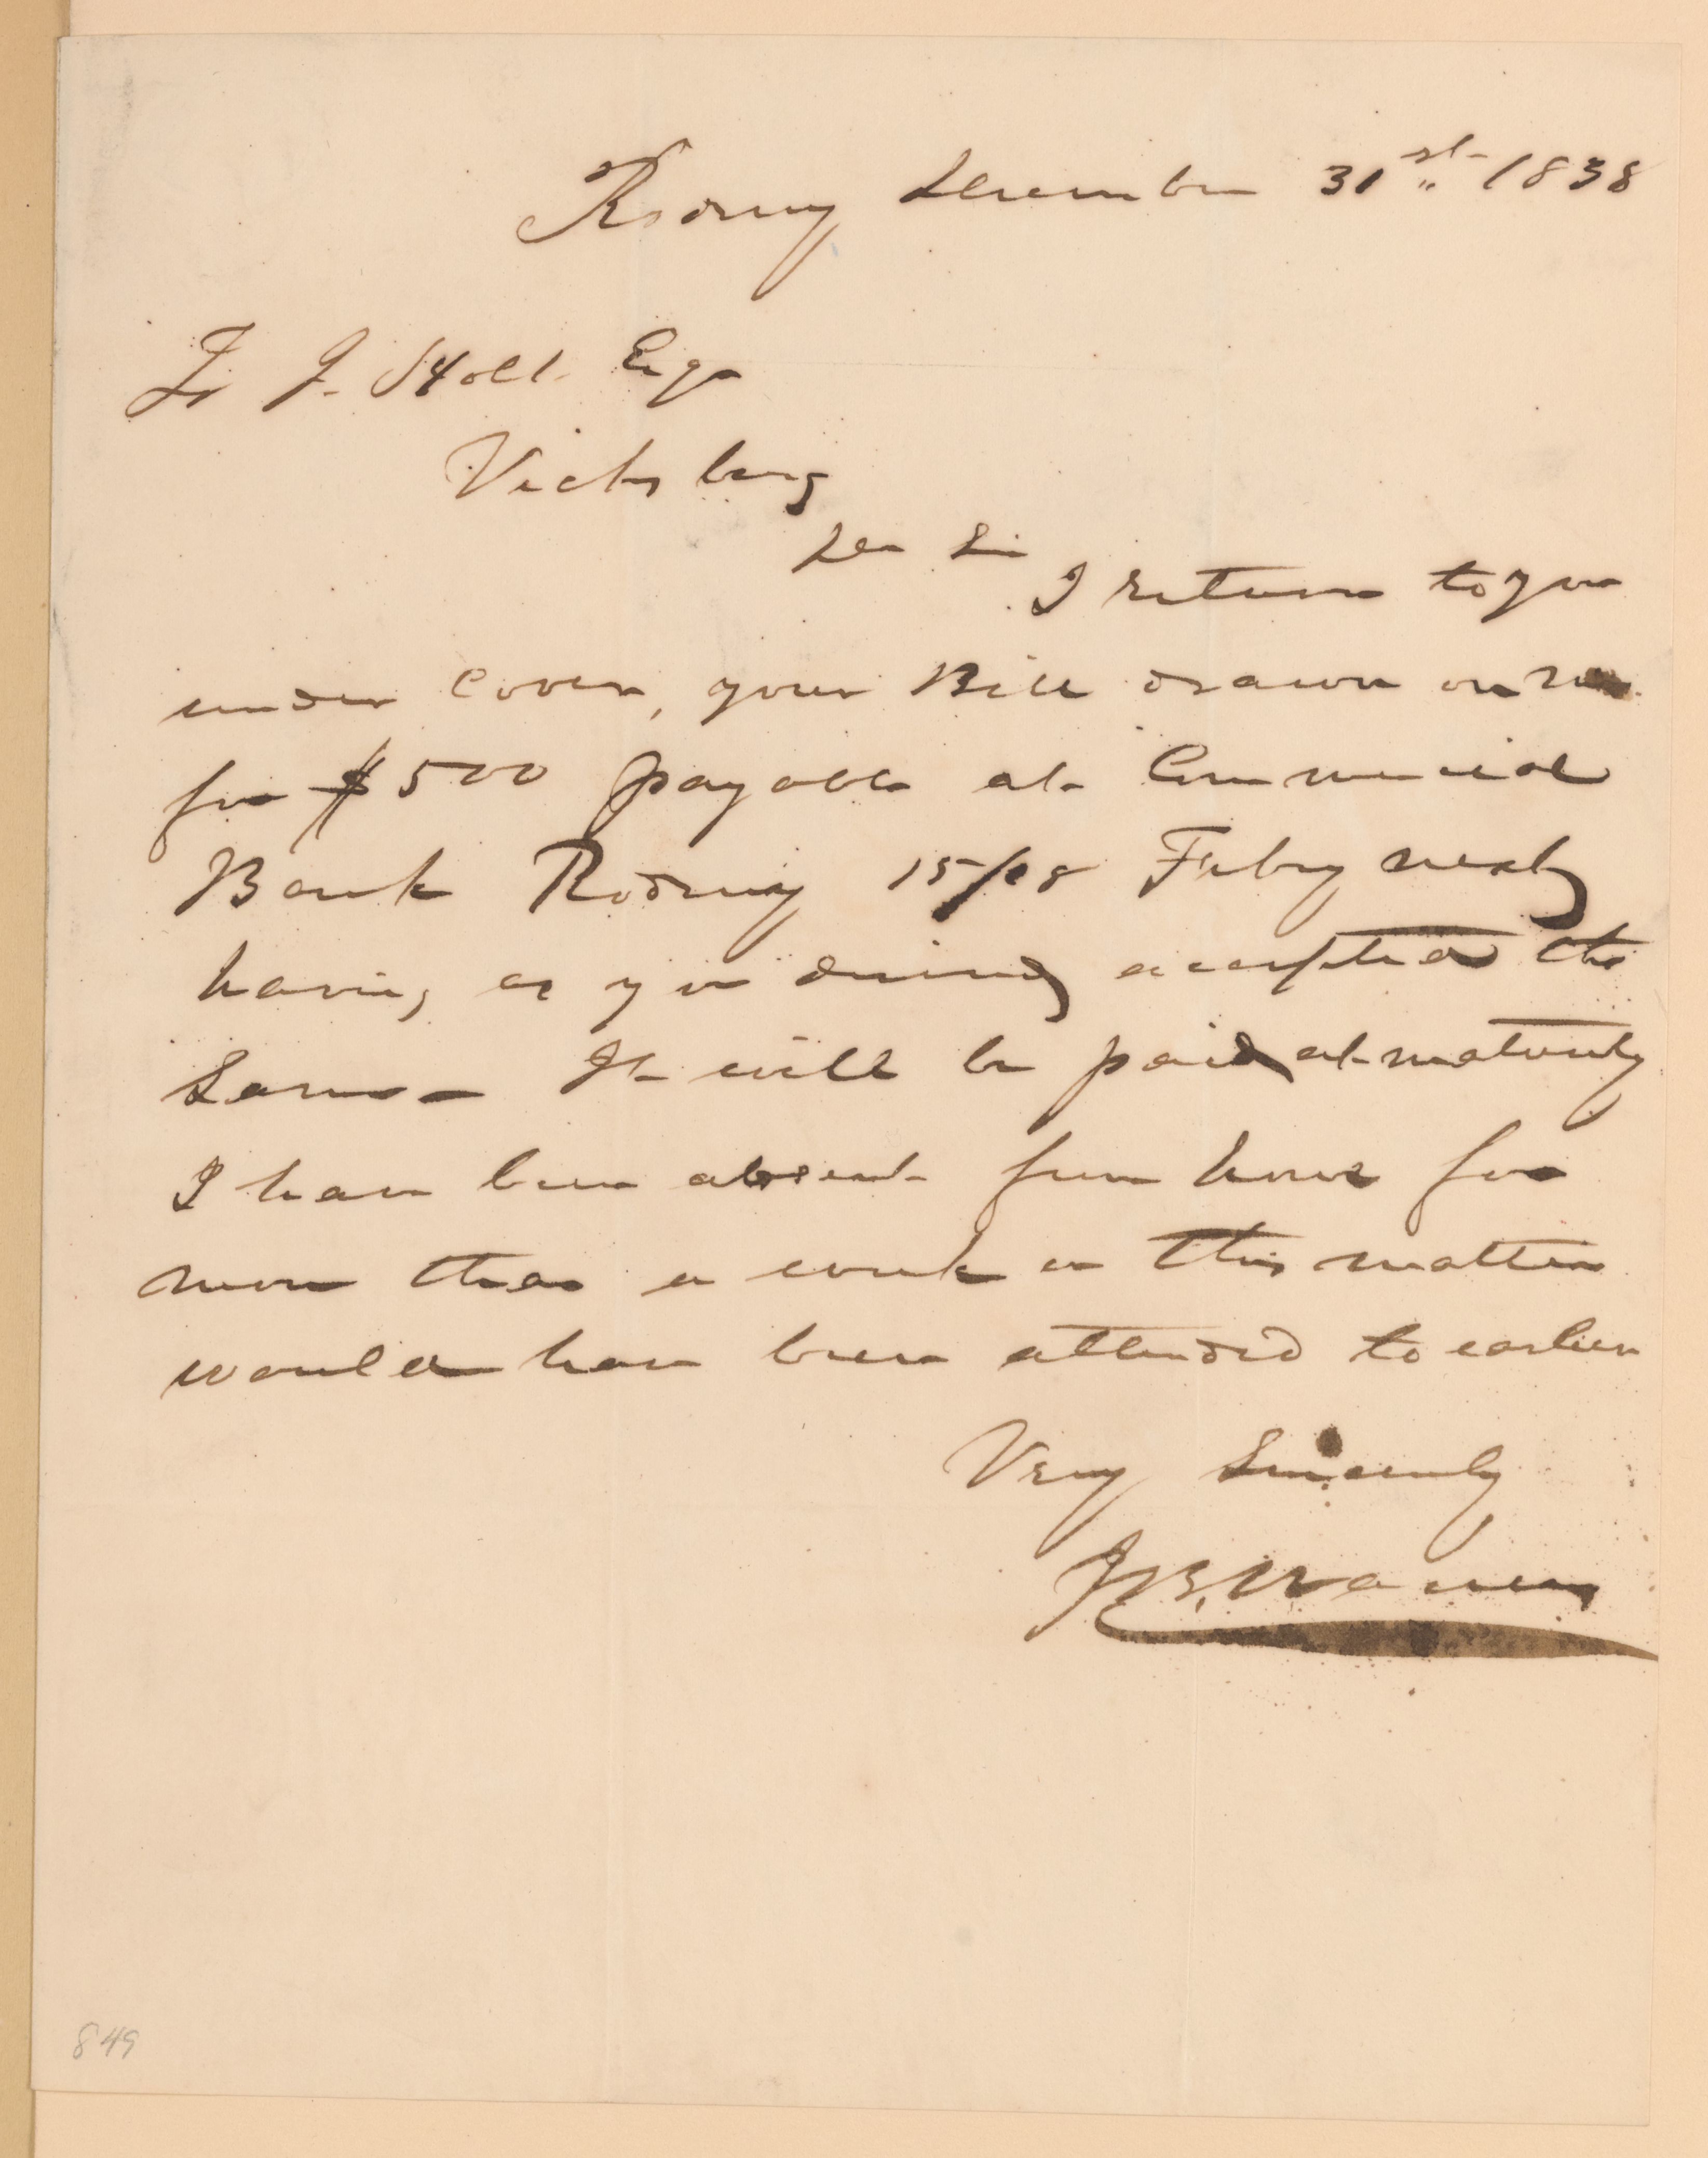 Rodney December 31st 1838
To J. Holt Esqr
Vicksburg
Dr Sir
I return to you
under cover, your Bill drawn on me
for $500 payable at Commercial
Bank Rodney 15/18 Feby next
having as you desired accepted the
Same — It will be paid at maturity
I have been absent from home for
more than a week or this matter
would have been attended to earlier
Very Sincerely
849